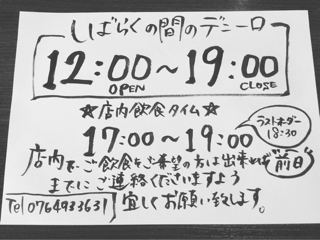 しばらくの間のデニーロ
12:00~19:00
OPEN CLOSE
☆店内飲食タイム☆
17:00~19:00
ラストオーダー
18:30
店内でご飲食をご希望の方は出来れば"前日"
までにご連絡くださいますよう
Tel 0764933631 宜しくお願い致します。